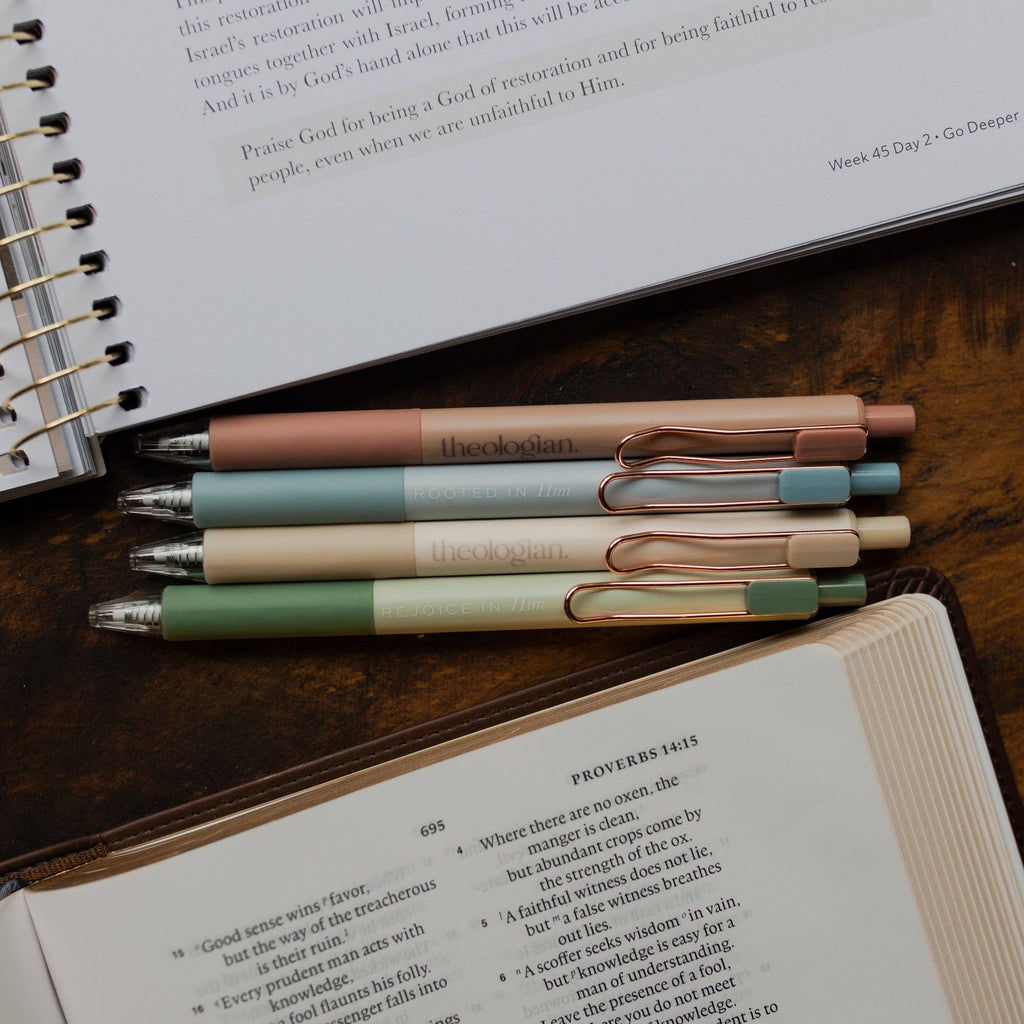 this restoration will
Israel's restoration will
tongues together with Israel, forming
And it is by God's hand alone that this will be
Praise God for being a God of restoration and for being faithful to
people, even when we are unfaithful to Him.
Week 45 Day 2 • Go Deeper
theologian.
ROOTED IN Him
theologian.
REJOICE IN Him
695
15 Good sense wins p favor,
but the way of the treacherous
is their ruin.1
16 Every prudent man acts with
knowledge,
a fool flaunts his folly.
falls into
PROVERBS 14:15
4 Where there are no oxen, the
manger is clean,
but abundant crops come by
the strength of the ox.
5 l A faithful witness does not lie,
but m a false witness breathes
out lies.
6 n A scoffer seeks wisdom o in vain,
but p knowledge is easy for a
man of understanding.
Leave the presence of a fool,
you do not meet
knowledge.
is to